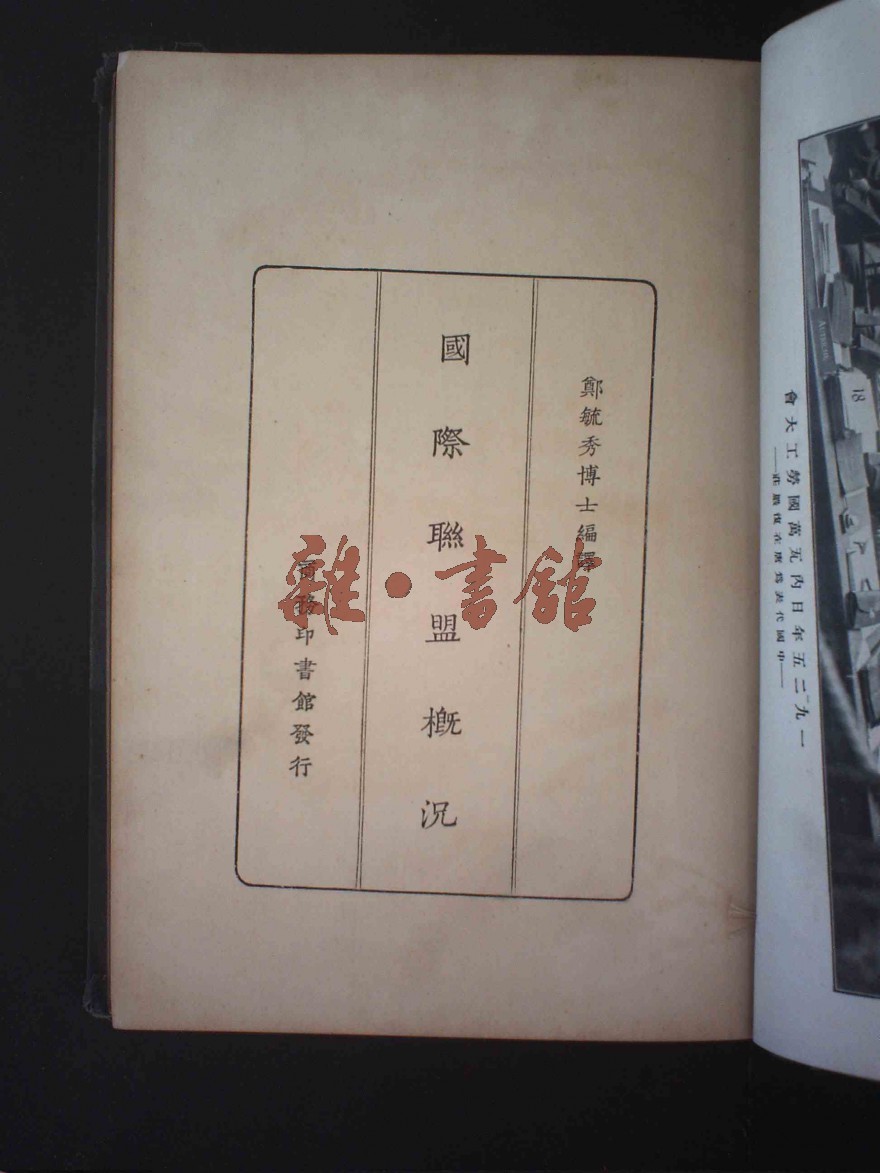 鄭毓秀博士編譯
國際聯盟概況
商務印書館發行
雜·書館
一九二五年日內瓦萬國勞工大會
——中國代表為唐在復與莊
18